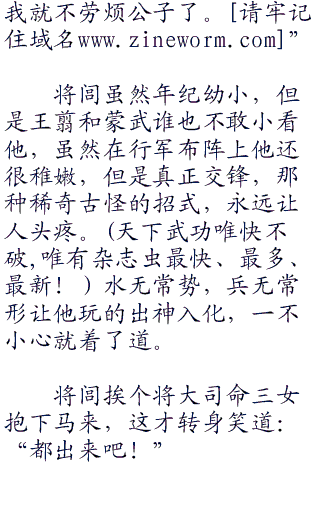 我就不劳烦公子了。[请牢记
住域名www.zineworm.com]”
将闾虽然年纪幼小，但
是王翦和蒙武谁也不敢小看
他，虽然在行军布阵上他还
很稚嫩，但是真正交锋，那
种稀奇古怪的招式，永远让
人头疼。(天下武功唯快不
破,唯有杂志虫最快、最多、
最新！)水无常势，兵无常
形让他玩的出神入化，一不
小心就着了道。
将闾挨个将大司命三女
抱下马来，这才转身笑道：
“都出来吧！”